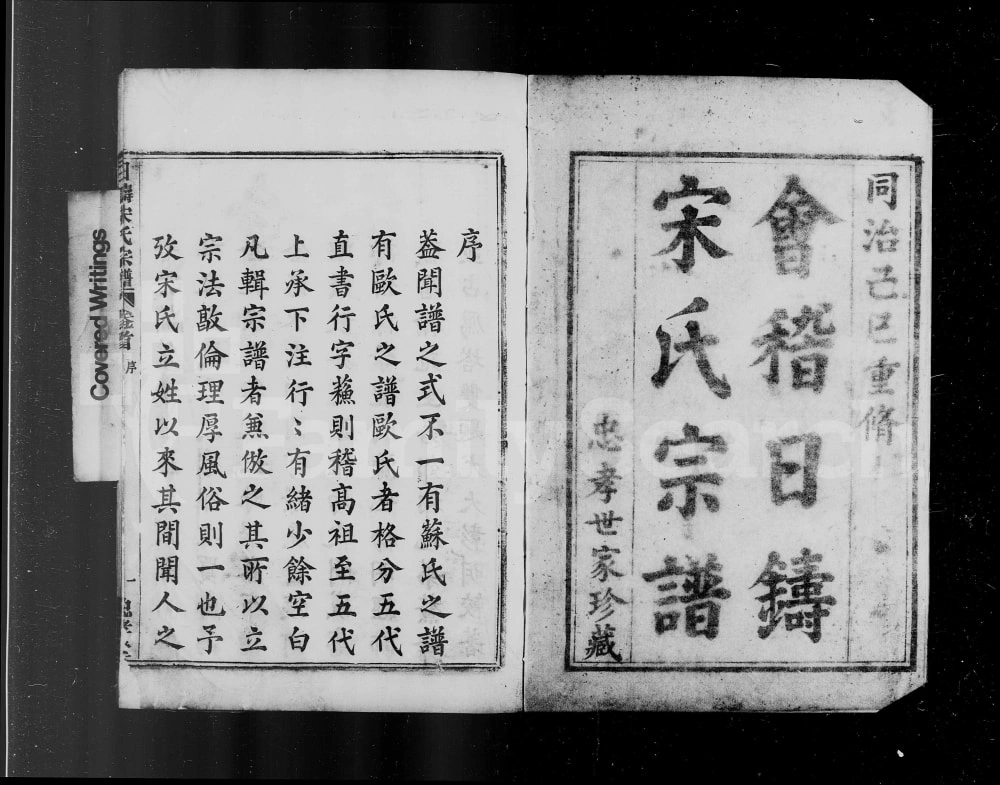 同治己巳重脩
會稽日鑄
宋氏宗譜
忠孝世家珍藏
序
葢聞譜之式不一有蘇氏之譜
有歐氏之譜歐氏者格分五代
直書行字蘓則稽高祖至五代
上承下注行〻有緒少餘空白
凡輯宗譜者兼倣之其所以立
宗法敦倫理厚風俗則一也予
攷宋氏立姓以來其間聞人之
日鑄宋氏宗譜 卷首 序 一
Covered Writings
FamilySearch